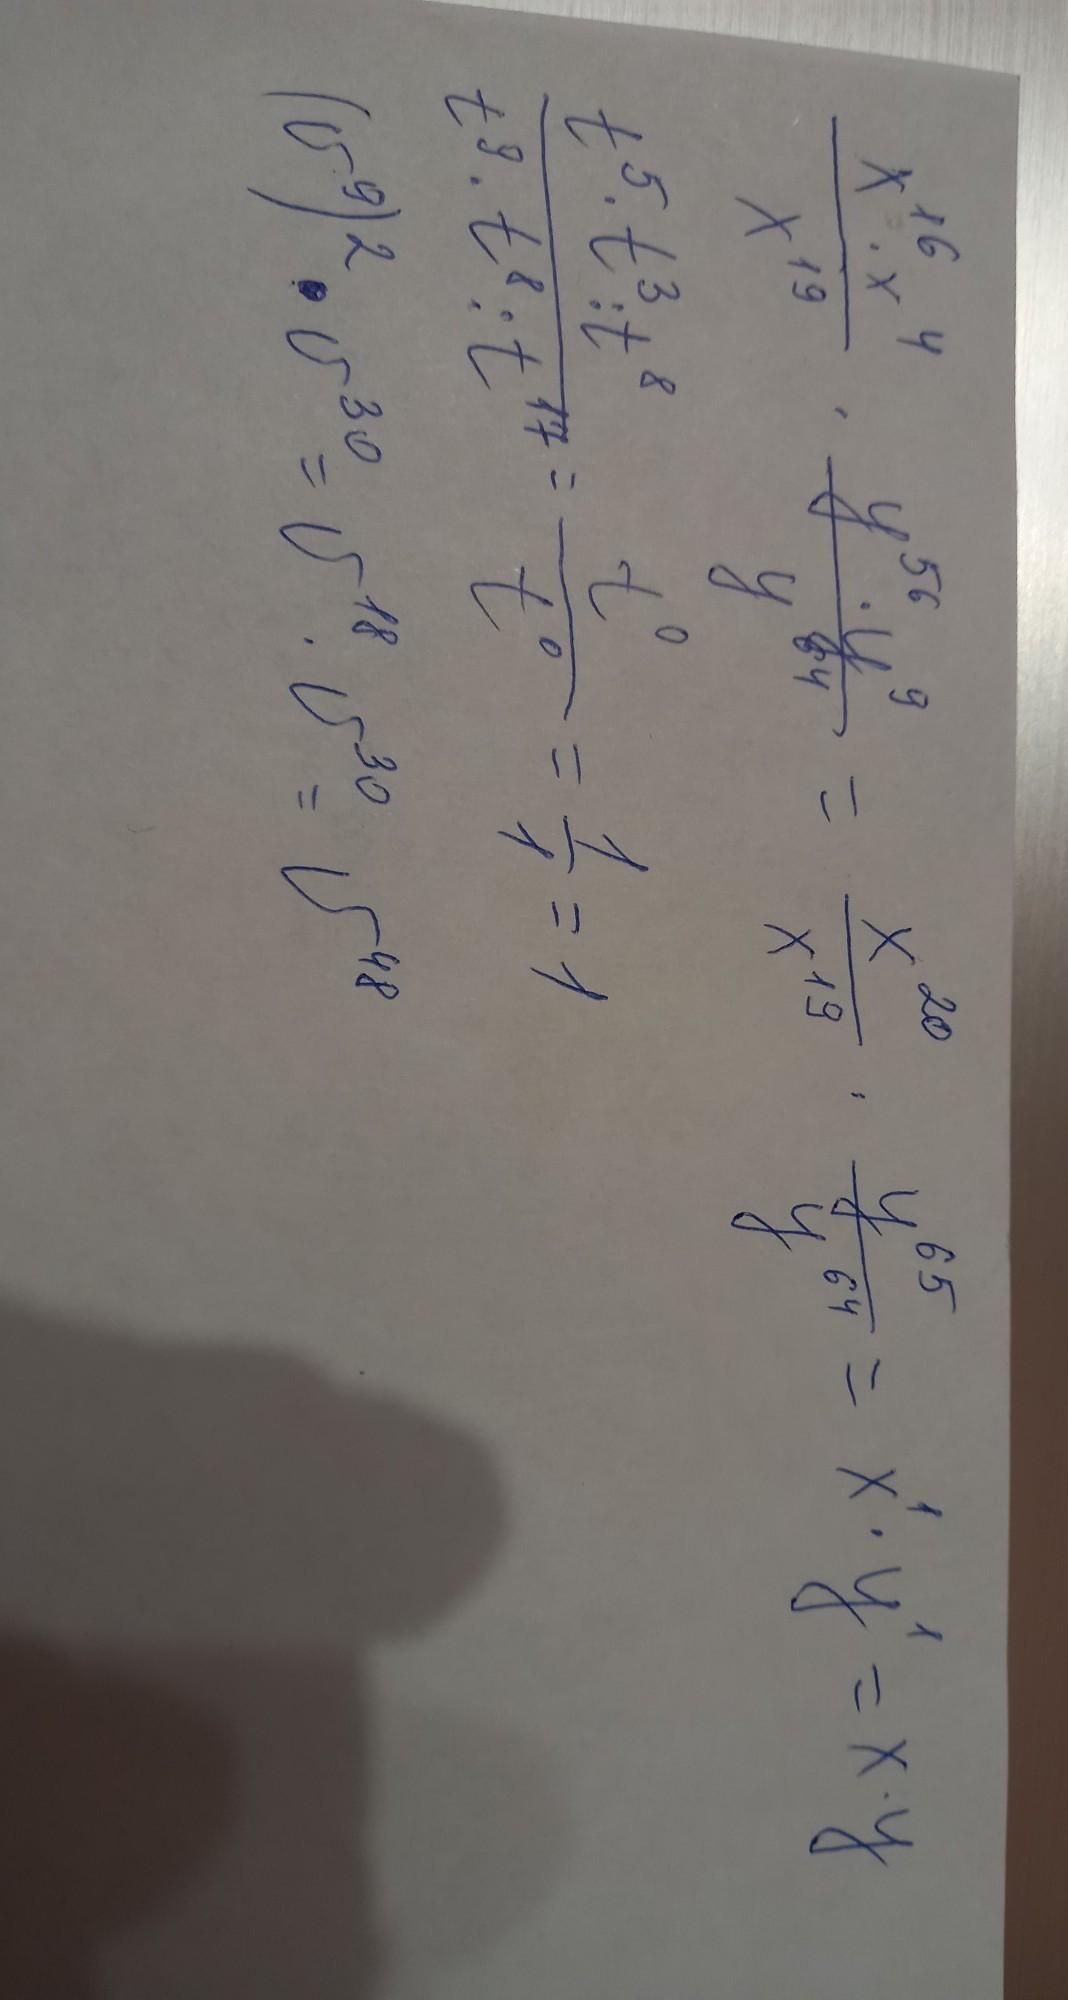 x¹⁶·x⁴/x¹⁹ · y⁵⁶·y⁹/y⁶⁴ = x²⁰/x¹⁹ · y⁶⁵/y⁶⁴ = x¹·y¹ = x·y
t⁵·t³:t⁸/t⁹·t⁸:t¹⁷ = t⁰/t⁰ = 1/1 = 1
(v⁹)²·v³⁰ = v¹⁸·v³⁰ = v⁴⁸